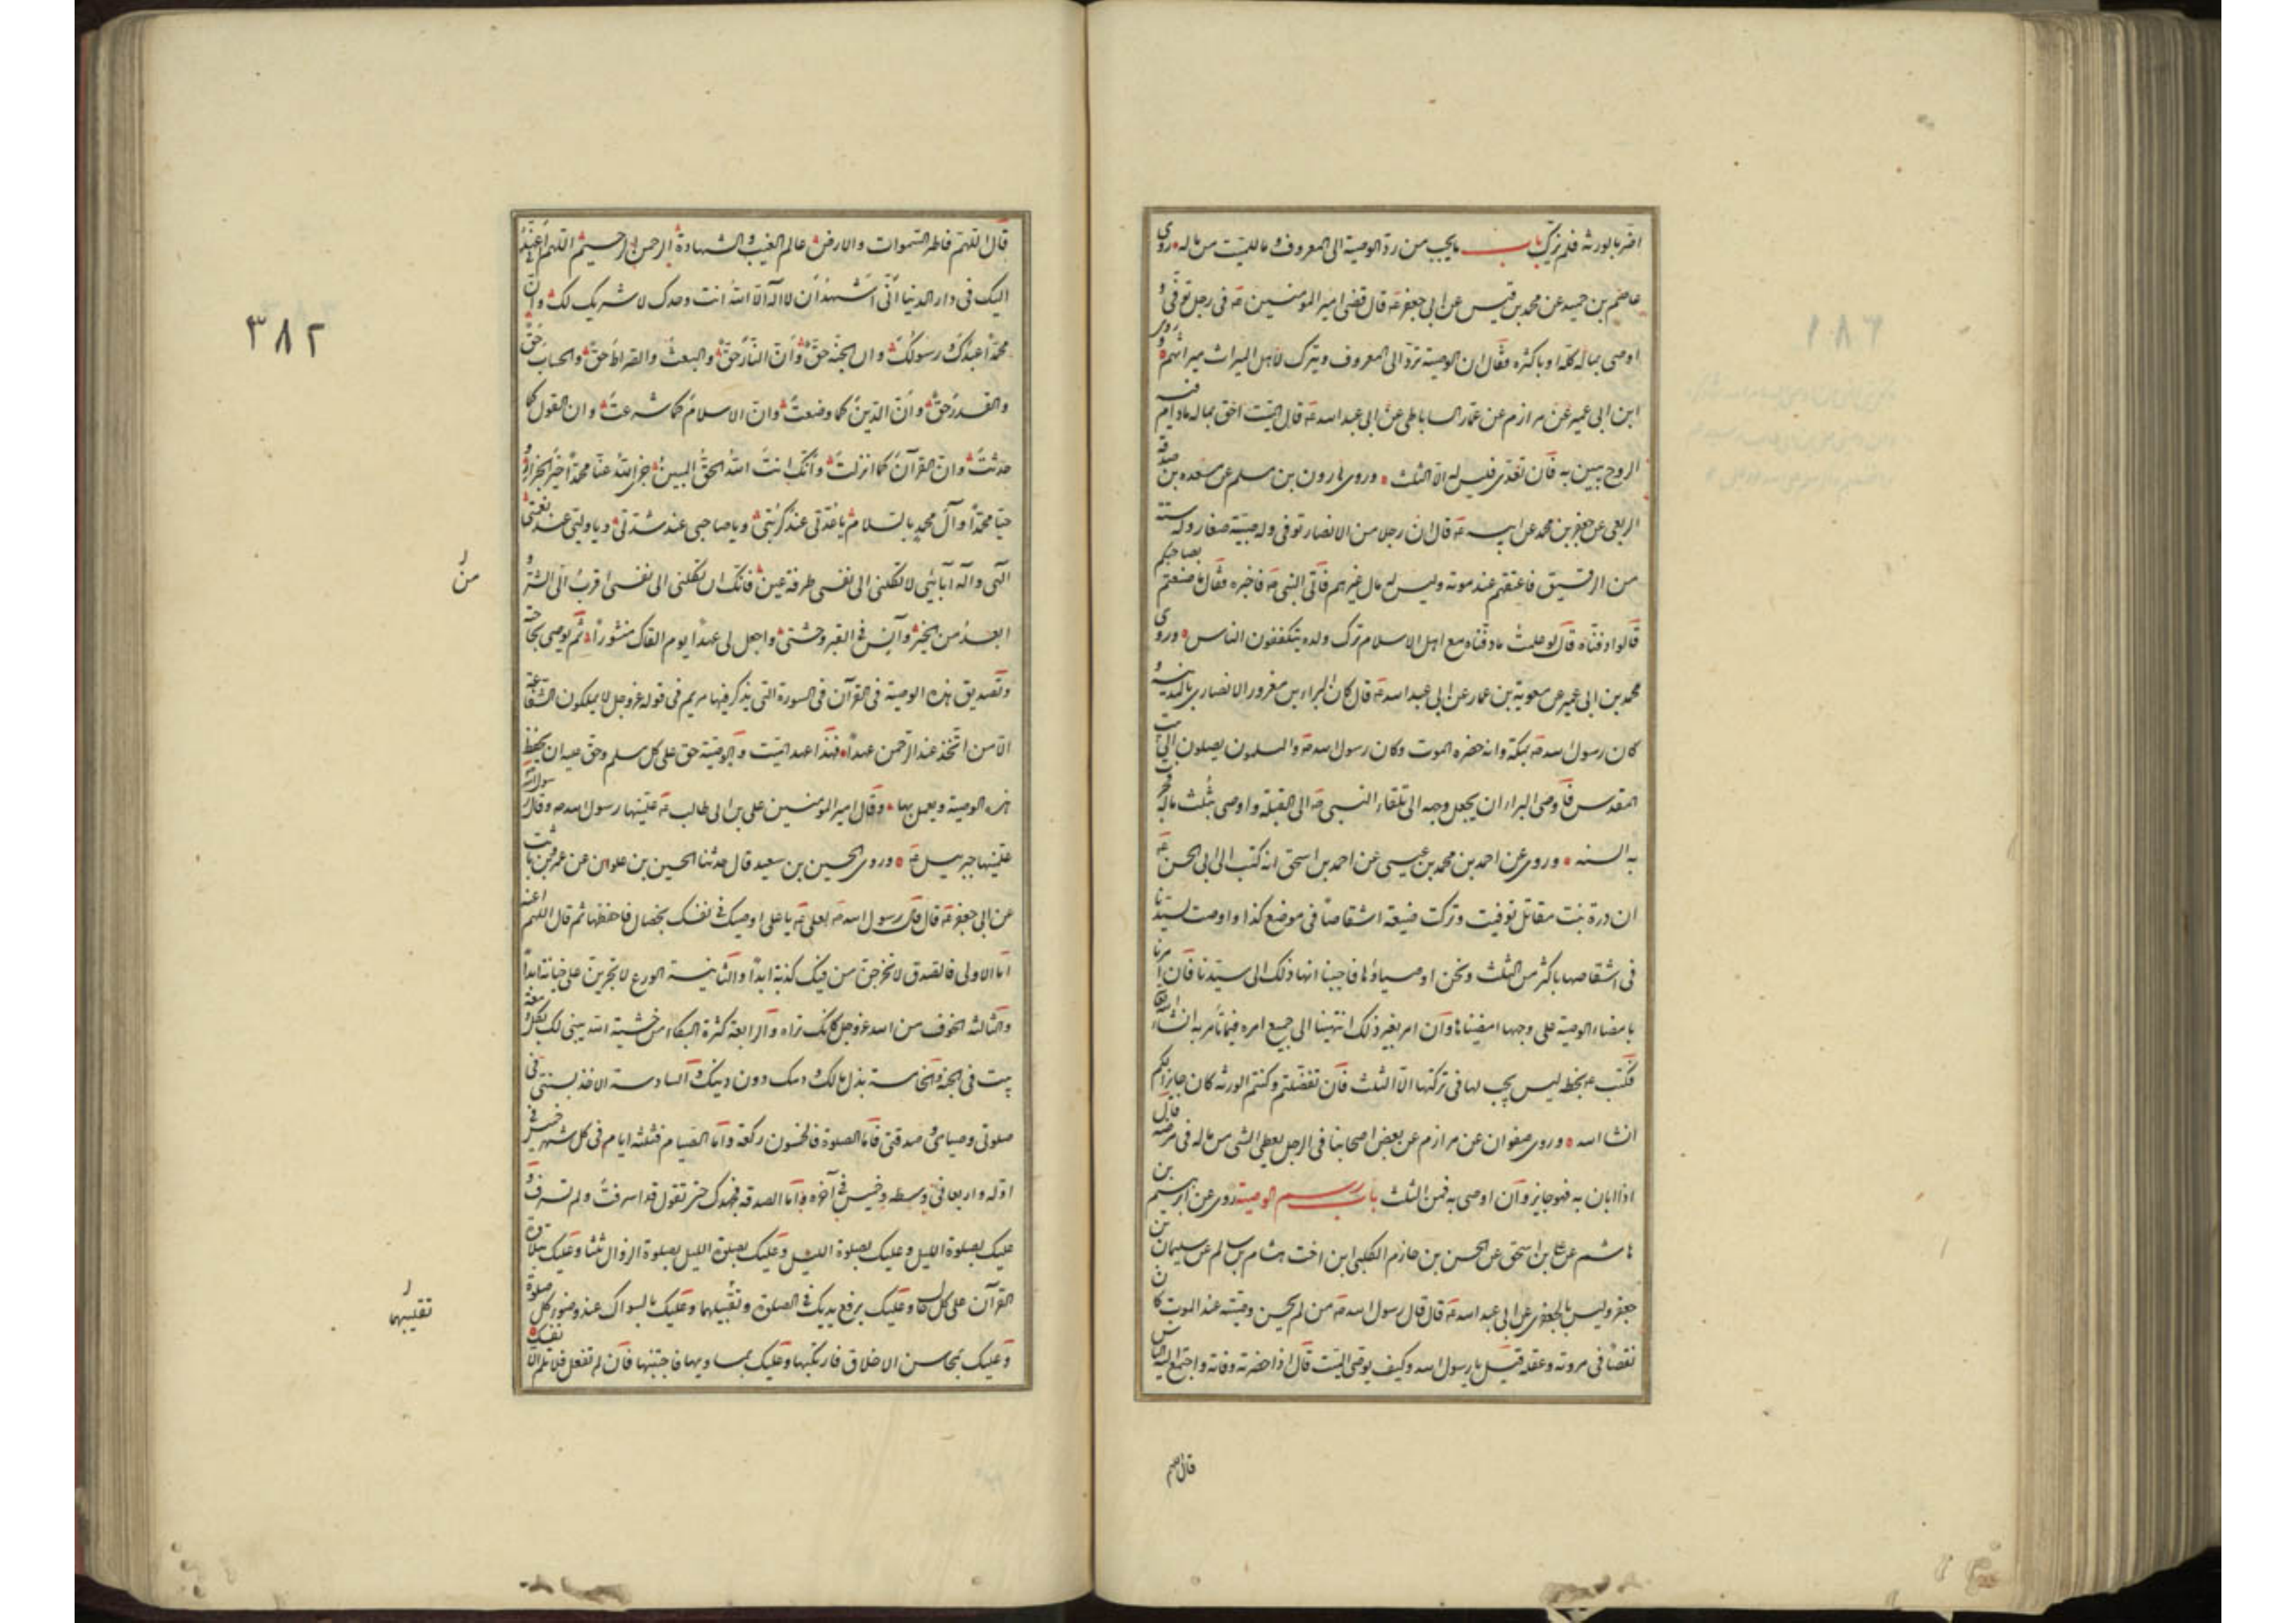 اضر بالورثة فلم يترك باب ما يجب من رد الوصية الى المعروف وما للميت من ماله روى
عاصم بن حميد عن محمد بن قيس عن ابى جعفر ع قال قضى امير المومنين ع فى رجل توفى و
اوصى بماله كله او باكثره فقال ان الوصية ترد الى المعروف ويترك لاهل الميراث ميراثهم وروى
ابن ابى عمير عن مرازم عن عمار الساباطى عن ابى عبد الله ع قال الميت احق بماله مادام فيه
الروح يبين به فان تعدى فليس له الا الثلث وروى هارون بن مسلم عن مسعده بن صدقة
الربعى عن جعفر بن محمد عن ابيه ع قال ان رجلا من الانصار توفى وله صبية صغار وله ستة
من الرقيق فاعتقهم عند موته وليس له مال غيرهم فاتى النبى ص فاخبره فقال ما صنعتم بصاحبكم
قالوا دفناه قال لو علمت ما دفناه مع اهل الاسلام ترك ولده يتكففون الناس وروى
محمد بن ابى عمير عن معوية بن عمار عن ابى عبد الله ع قال كان البراء بن مغرور الانصارى بالمدينة و
كان رسول الله ص بمكة وانه حضره الموت وكان رسول الله ص والمسلمون يصلون الى بيت
المقدس فاوصى البراء ان يجعل وجهه الى تلقاء النبى ص الى القبلة واوصى بثلث ماله فجرت
به السنه وروى عن احمد بن محمد بن عيسى عن احمد بن اسحق انه كتب الى ابى الحسن ع
ان درة بنت مقاتل توفيت وتركت ضيعة اشقاصا فى موضع كذا واوصت لسيدنا
فى اشقاصها باكثر من الثلث ونحن اوصياؤها فاحببنا انهاء ذلك الى سيدنا فان امرنا
بامضاء الوصية على وجهها امضيناها وان امر بغير ذلك انتهينا الى جميع امره فيما نامر به انشاء الله
فكتب ع بخطه ليس يجب لها فى تركتها الا الثلث فان تفضلتم وكنتم الورثة كان جايزا لكم
انشا الله وروى صفوان عن مرازم عن بعض اصحابنا فى الرجل يعطى الشى من ماله فى مرضه قال
اذا ابان به فهو جايز وان اوصى به فمن الثلث باب رسم الوصية روى عن ابرهيم بن
هاشم عن على بن اسحق عن الحسن بن حازم الكلبى ابن اخت هشام بن سالم عن سليمان بن
جعفر وليس بالجعفرى عن ابى عبد الله ع قال قال رسول الله ص من لم يحسن وصيته عند الموت كان
نقصا فى مروته وعقله قيل يا رسول الله وكيف يوصى الميت قال اذا حضرته وفاته واجتمع اليه الناس
قال اللهم
٣٨٢
قال اللهم فاطر السموات والارض عالم الغيب والشهادة الرحمن الرحيم اللهم انى اعهد
اليك فى دار الدنيا انى اشهد ان لا اله الا الله انت وحدك لا شريك لك وان
محمدا عبدك ورسولك وان الجنة حق وان النار حق والبعث والصراط حق والحساب حق
والقدر حق وان الدين كما وصفت وان الاسلام كما شرعت وان القول كما
حدثت وان القرآن كما انزلت وانك انت الله الحق المبين جزى الله عنا محمدا خير الجزاء و
حيا محمدا وآل محمد بالسلام يا عدتى عند كربتى ويا صاحبى عند شدتى ويا وليى عند نعمتى
الهى واله آبائى لا تكلنى الى نفسى طرفة عين فانك ان تكلنى الى نفسى اقرب الى الشر و
من
ابعد من الخير وآنس فى القبر وحشتى واجعل لى عهدا يوم القاك منشورا ثم يوصى بحاجته
وتصديق هذه الوصية فى القرآن فى السورة التى يذكر فيها مريم فى قوله عز وجل لا يملكون الشفاعة
الا من اتخذ عند الرحمن عهدا فهذا عهد الميت والوصية حق على كل مسلم وحق عليه ان يحفظ
هذه الوصية ويعمل بها وقال امير المومنين على بن ابى طالب ع علمنيها رسول الله ص وقال رسول الله
علمنيها جبرئيل ع وروى الحسين بن سعيد قال حدثنا الحسين بن علوان عن عمرو بن ثابت
عن ابى جعفر ع قال قال رسول الله ص لعلى ع يا على اوصيك فى نفسك بخصال فاحفظها ثم قال اللهم اعنه
اما الاولى فالصدق لا تخرجن من فيك كذبة ابدا والثانية الورع لا تجترين على خيانة ابدا
والثالثة الخوف من الله عز وجل كانك تراه والرابعة كثرة البكاء من خشية الله يبنى لك بكل دمعة
بيت فى الجنة والخامسة بذل مالك ودمك دون دينك والسادسة الاخذ بسنتى فى
صلوتى وصيامى وصدقتى فاما الصلوة فالخمسون ركعة واما الصيام فثلثة ايام فى كل شهر خميس فى
اوله واربعا فى وسطه وخميس فى آخره واما الصدقة فجهدك حتى تقول قد اسرفت ولم تسرف و
عليك بصلوة الليل وعليك بصلوة الليل وعليك بصلوة الليل بصلوة الزوال ثلثا وعليك بتلاوة
القرآن على كل حال وعليك برفع يديك فى الصلوة وتقليبهما وعليك بالسواك عند وضوء كل صلوة
تقليبهما
وعليك بمحاسن الاخلاق فاركبها وعليك بمساويها فاجتنبها فان لم تفعل فلا تلم الا نفسك